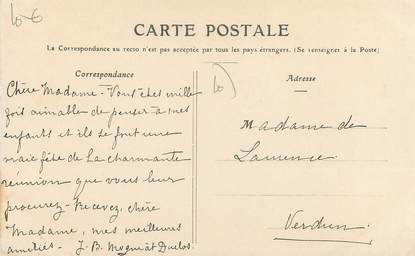 10 €
CARTE POSTALE
La Correspondance au recto n'est pas acceptée par tous les pays étrangers. (Se renseigner à la Poste)
Correspondance
Adresse
Chère Madame - Vous êtes mille
fois aimable de penser à mes
enfants et ils se font une
vraie fête de la charmante
réunion que vous leur
procurez - Recevez, chère
Madame, mes meilleures
amitiés - J. B.
Madame de
Verdun.